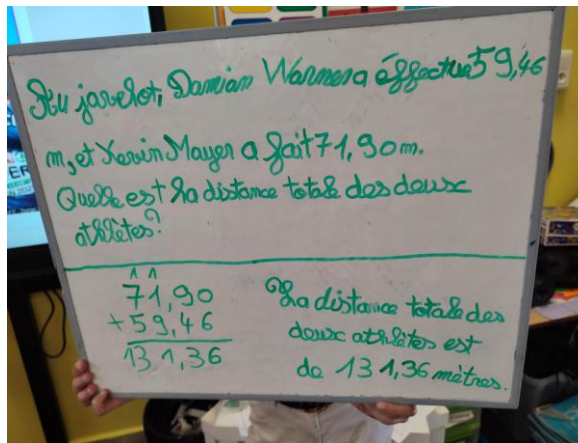 Au javelot, Damian Warner a éffectué 59,46
m, et Kevin Mayer a fait 71,90 m.
Quelle est la distance totale des deux
athlètes?
1 1
71,90
+ 59,46
131,36
La distance totale des
deux athlètes est
de 131,36 mètres.